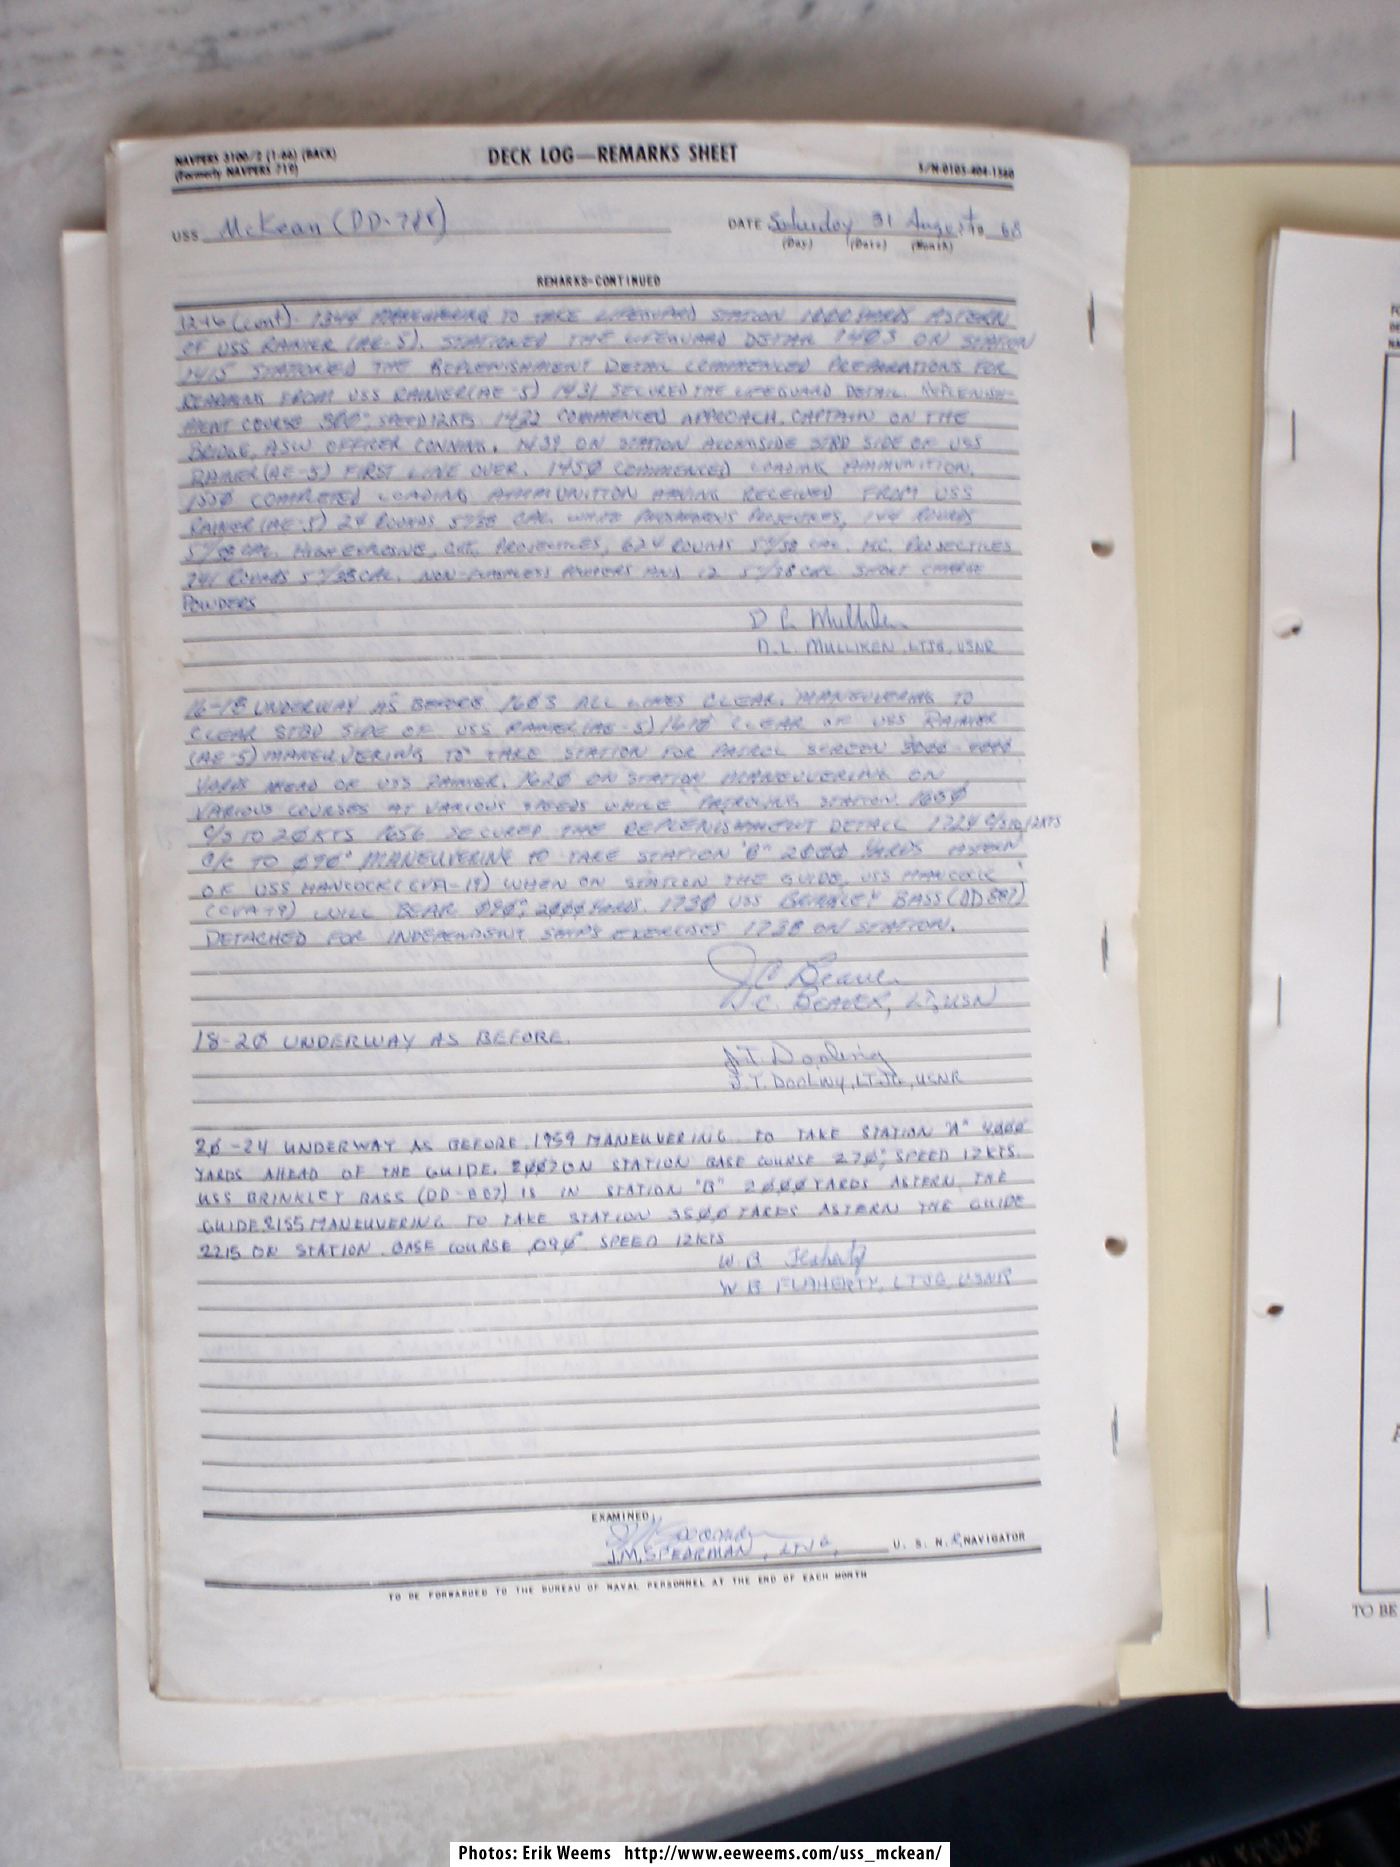 NAVPERS 3100/2 (1-66) (BACK)
(Formerly NAVPERS 719)
DECK LOG—REMARKS SHEET
S/N-0105-404-1360
USS McKean (DD-784)
DATE Saturday 31 August 19 68
(Day) (Date) (Month)
REMARKS-CONTINUED
12-16 (cont). 134Ø MANEUVERING TO TAKE LIFEGUARD STATION 1000 YARDS ASTERN
OF USS RAINIER (AE-5). STATIONED THE LIFEGUARD DETAIL 14Ø3 ON STATION
1415 STATIONED THE REPLENISHMENT DETAIL COMMENCED PREPARATIONS FOR
REARMING FROM USS RAINIER (AE-5) 1431 SECURED THE LIFEGUARD DETAIL. REPLENISH-
MENT COURSE SPEED 12KTS. 1422 COMMENCED APPROACH. CAPTAIN ON THE
BRIDGE, ASW OFFICER CONNING. 1439 ON STATION ALONGSIDE STBD SIDE OF USS
RAINER (AE-5) FIRST LINE OVER. 145Ø COMMENCED LOADING AMMUNITION.
155Ø COMPLETED LOADING AMMUNITION HAVING RECEIVED FROM USS
RAINER (AE-5) 24 ROUNDS 5"/38 CAL. WHITE PHOSPHORUS PROJECTILES, 144 ROUNDS
5"/38 CAL. HIGH EXPLOSIVE, PROJECTILES, 624 ROUNDS 5"/38 CAL. PROJECTILES
241 ROUNDS 5"/38 CAL. NON-FLASHLESS POWDERS AND 12 5"/38 CAL SHORT CHARGE
POWDERS
D L Mulliken
D.L. MULLIKEN LTJG, USNR
16-18 UNDERWAY AS BEFORE 16Ø3 ALL LINES CLEAR. MANEUVERING TO
CLEAR STBD SIDE OF USS RAINER (AE-5) 161Ø CLEAR OF USS RAINIER
(AE-5) MANEUVERING TO TAKE STATION FOR PATROL SCREEN 3000-4000
YARDS AHEAD OF USS RAINIER. 162Ø ON STATION MANEUVERING ON
VARIOUS COURSES AT VARIOUS SPEEDS WHILE PATROLING STATION.
C/S TO 2Ø KTS 1656 SECURED THE REPLENISHMENT DETAIL 1724 C/S TO 12KTS
C/C TO Ø9Ø° MANEUVERING TO TAKE STATION "B" 2ØØØ YARDS ASTERN
OF USS HANCOCK (CVA-19) WHEN ON STATION THE GUIDE, USS HANCOCK
(CVA-19) WILL BEAR Ø9Ø°, 2ØØØ YARDS. 173Ø USS BRINKLEY BASS (DD 887)
DETACHED FOR INDEPENDENT SHIPS EXERCISES 1738 ON STATION.
J C Beaver
J.C. BEAVER, LT, USN
18-2Ø UNDERWAY AS BEFORE.
J.T. Dooling
J.T. DOOLING, LTJG, USNR
2Ø-24 UNDERWAY AS BEFORE. 1959 MANEUVERING TO TAKE STATION "A" 4ØØØ
YARDS AHEAD OF THE GUIDE. 2ØØ7 ON STATION BASE COURSE 27Ø°, SPEED 12KTS.
USS BRINKLEY BASS (DD-887) IS IN STATION "B" 2ØØØ YARDS ASTERN THE
GUIDE. 2155 MANEUVERING TO TAKE STATION 35ØØ YARDS ASTERN THE GUIDE
2215 ON STATION. BASE COURSE Ø9Ø° SPEED 12KTS
W.B. Flaherty
W B FLAHERTY, LTJG, USNR
EXAMINED:
J.M. SPEARMAN, LTJG, U. S. N. R, NAVIGATOR
TO BE FORWARDED TO THE BUREAU OF NAVAL PERSONNEL AT THE END OF EACH MONTH
TO BE
Photos: Erik Weems http://www.eeweems.com/uss_mckean/